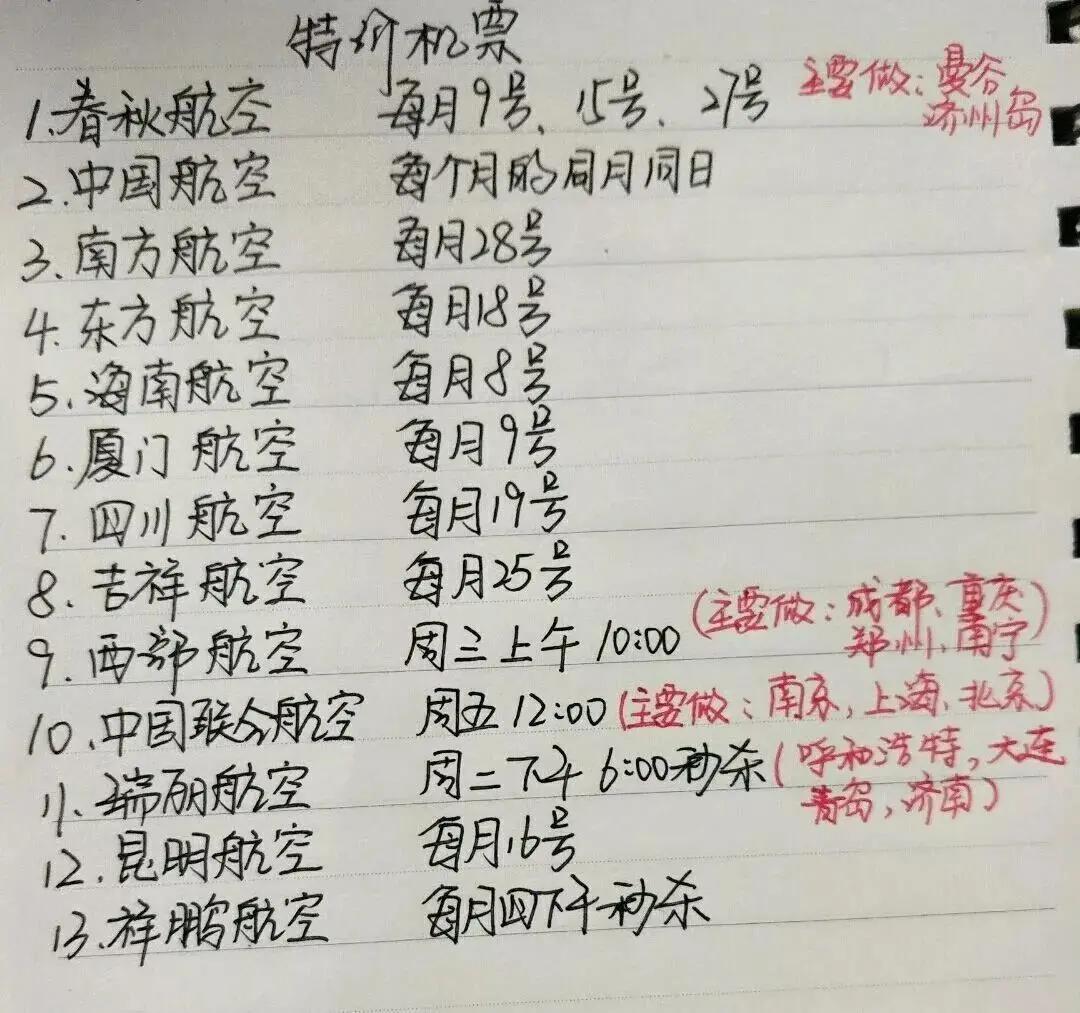 特价机票
1.春秋航空 每月9号、15号、27号 主要做:曼谷
济州岛
2.中国航空 每个月的同月同日
3.南方航空 每月28号
4.东方航空 每月18号
5.海南航空 每月8号
6.厦门航空 每月9号
7.四川航空 每月19号
8.吉祥航空 每月25号
9.西部航空 周三上午10:00 (主要做:成都、重庆
郑州、南宁)
10.中国联合航空 周五12:00 (主要做:南京,上海、北京)
11.瑞丽航空 周二下午6:00秒杀 (呼和浩特,大连
青岛,济南)
12.昆明航空 每月16号
13.祥鹏航空 每月四下午秒杀